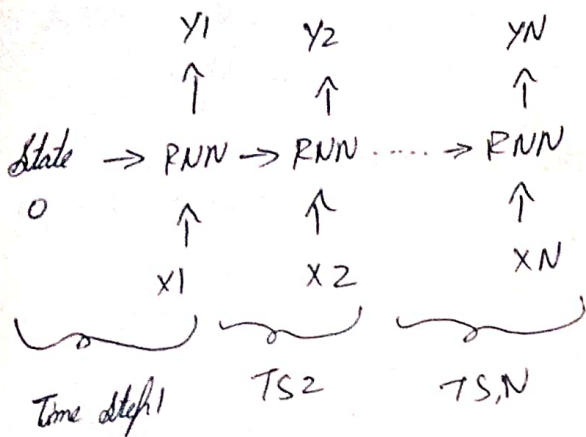 Y1 Y2 YN
State → RNN → RNN ..... → RNN
0
X1 X2 XN
Time step 1 TS2 TS,N